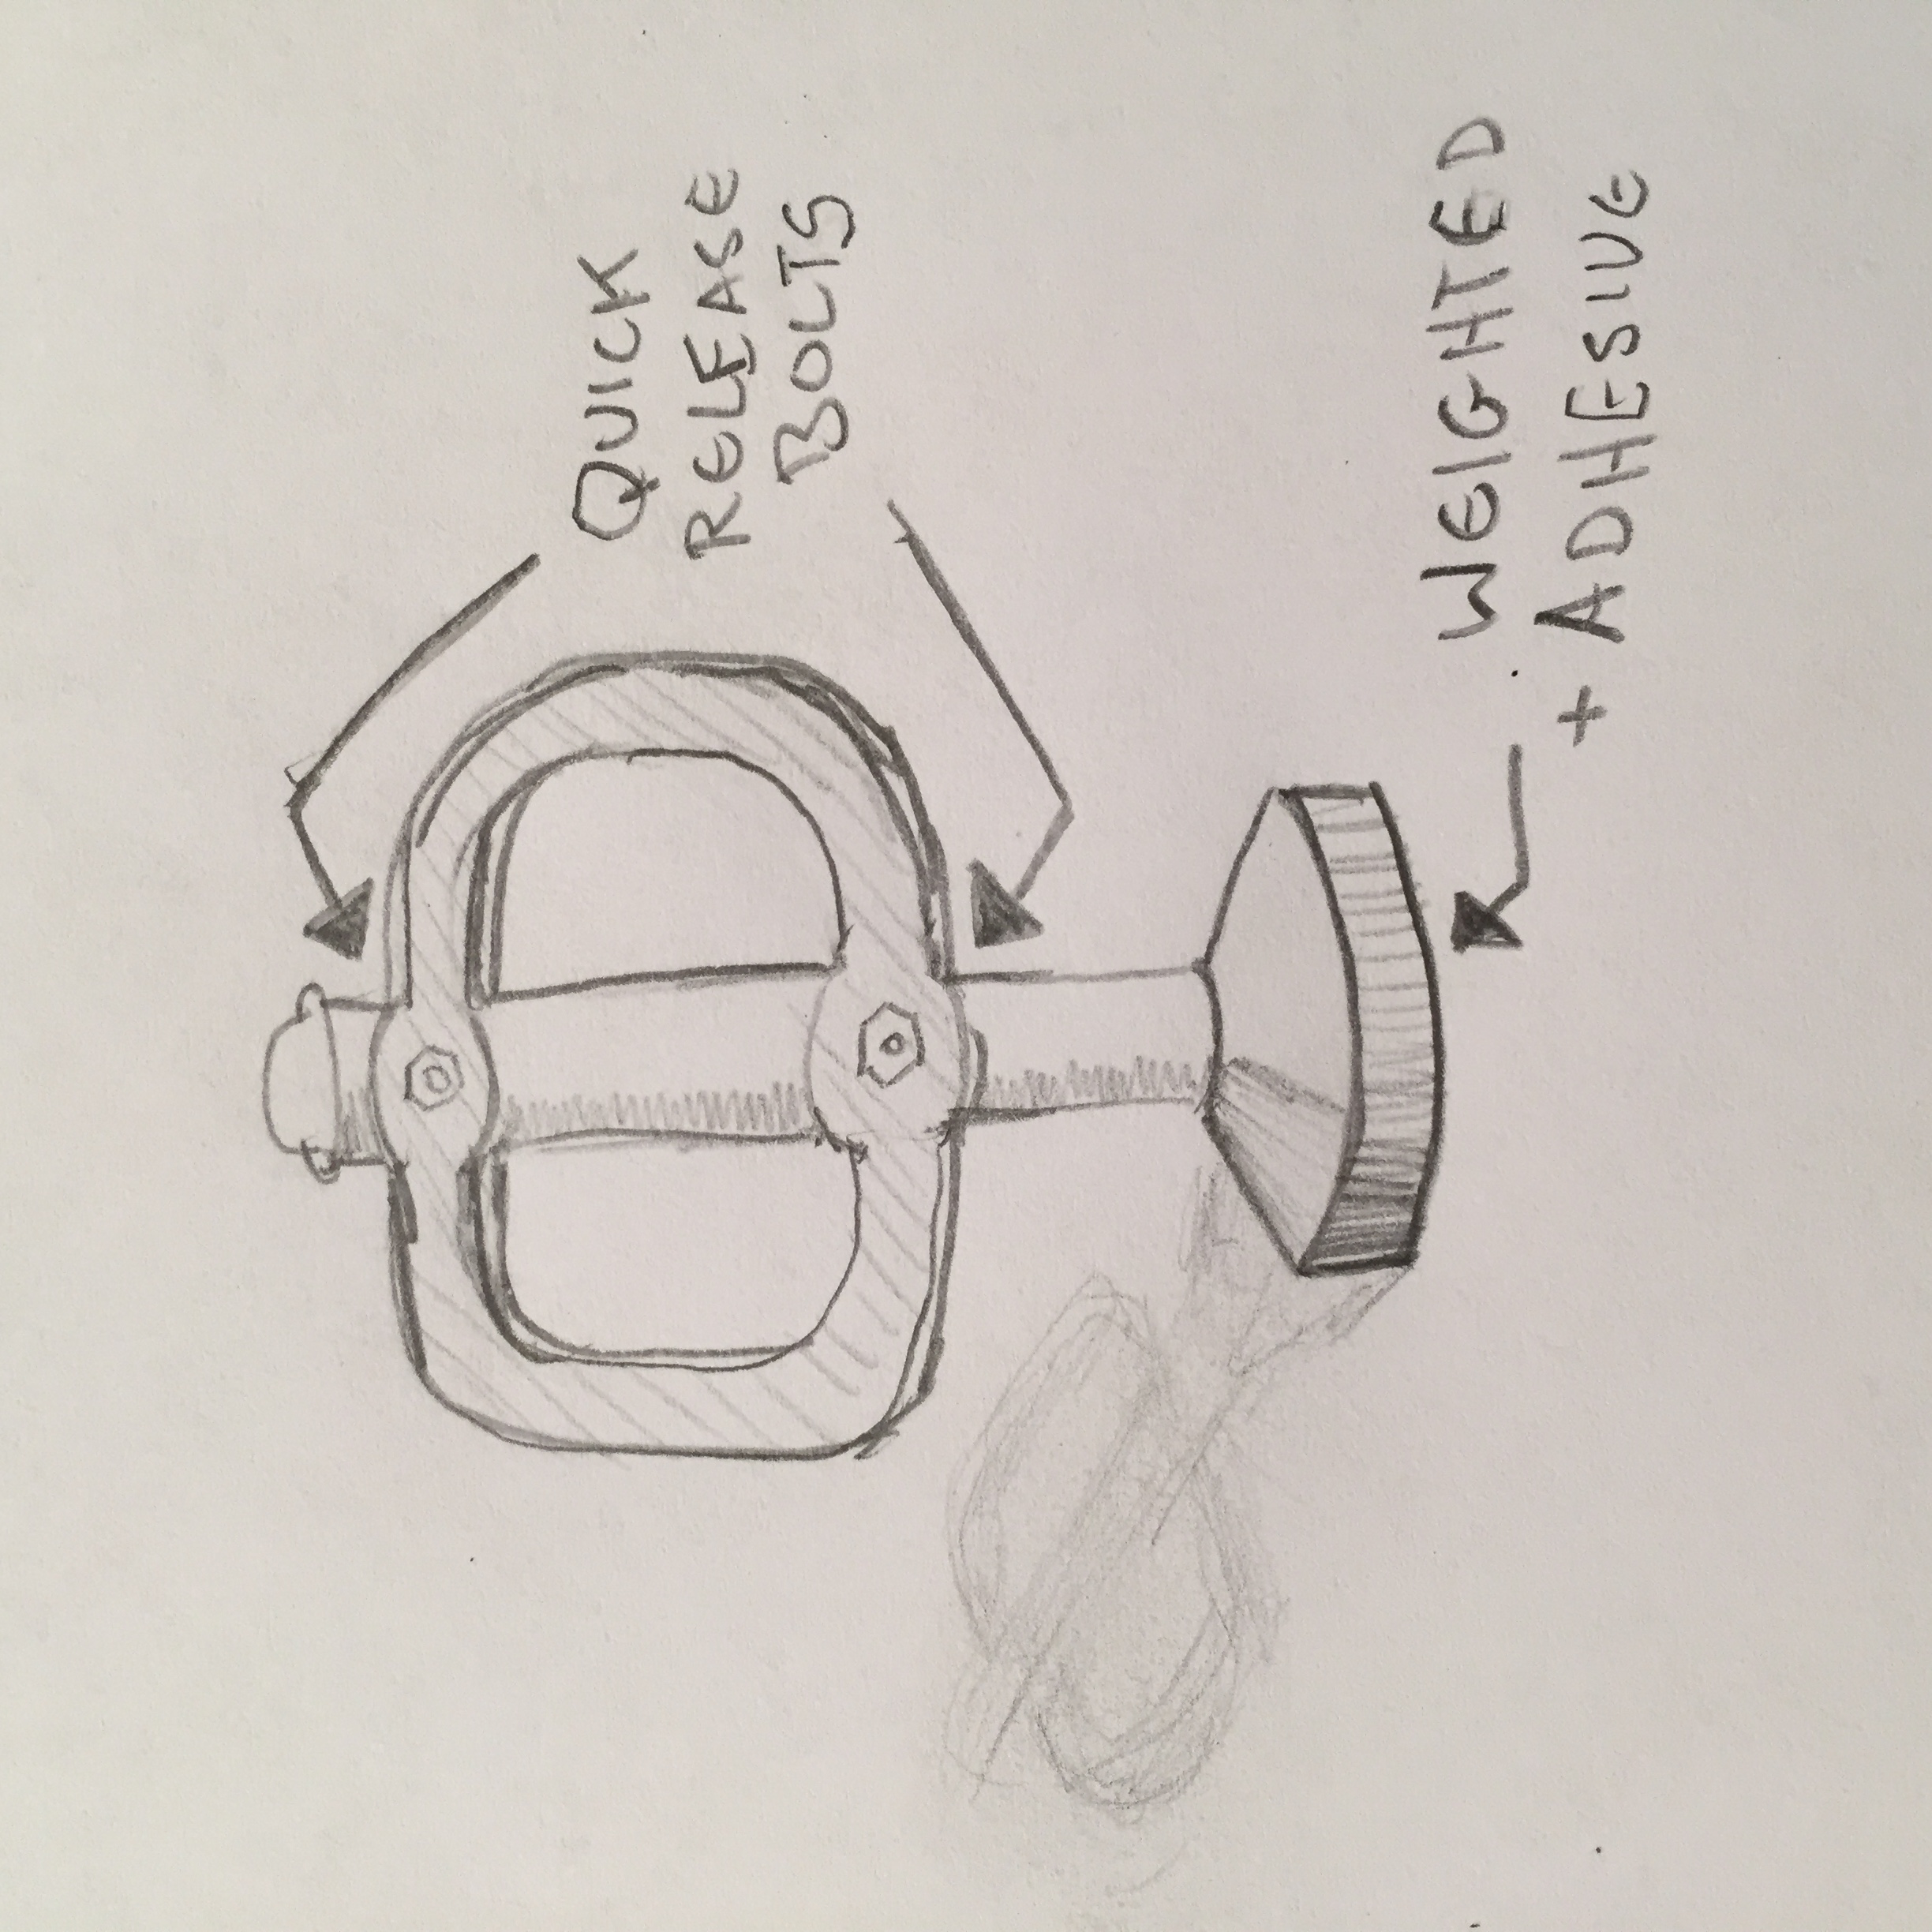 QUICK
RELEASE
BOLTS
WEIGHTED
+ ADHESIVE